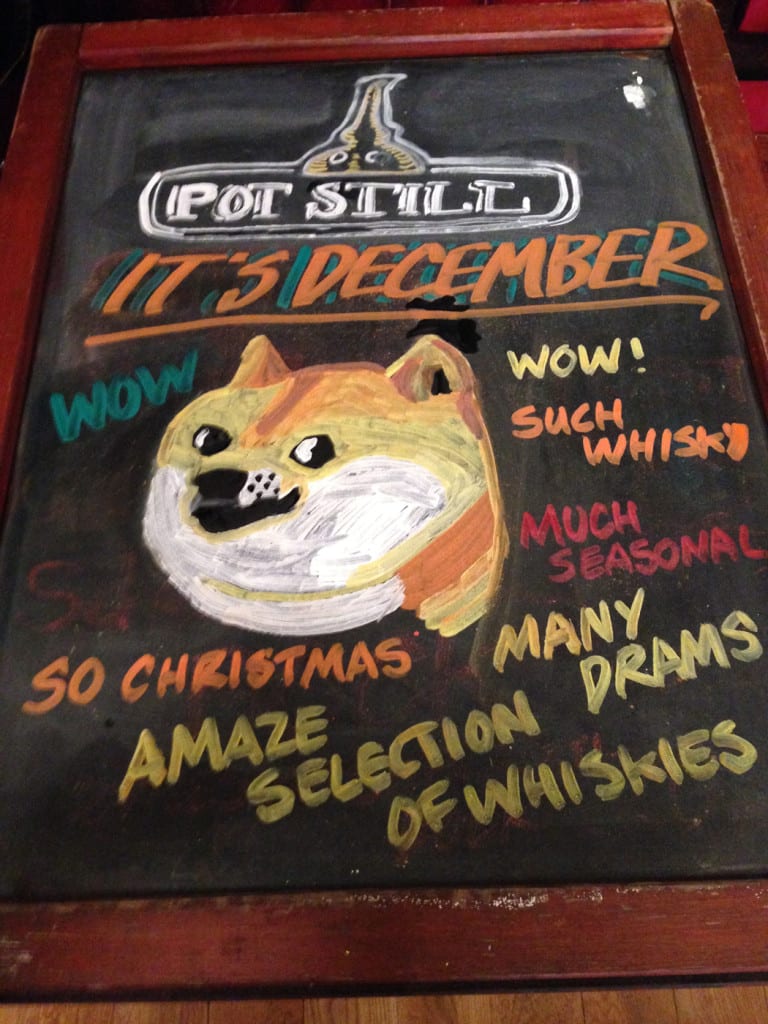 POT STILL
IT'S DECEMBER
WOW
WOW!
SUCH
WHISKY
MUCH
SEASONAL
MANY
DRAMS
SO CHRISTMAS
AMAZE
SELECTION
OF WHISKIES